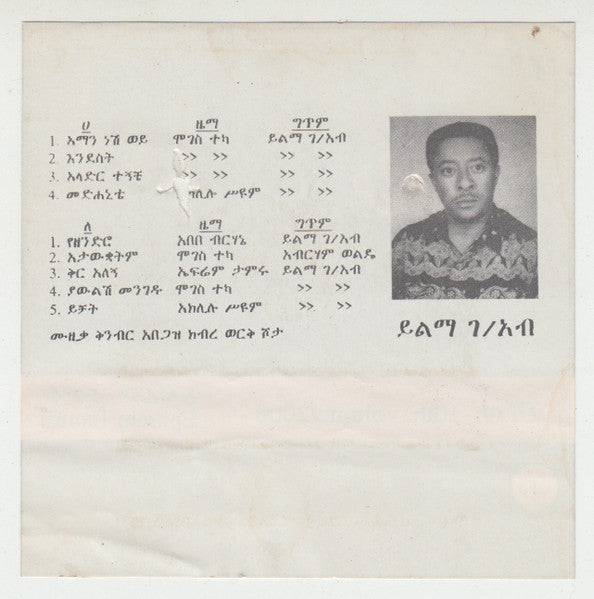 ሀ ዜማ ግጥም
1. አማን ነሽ ወይ ሞገስ ተካ ይልማ ገ/አብ
2. እንደስት >> >> >> >>
3. አላድር ተኝቼ >> >> >> >>
4. መድሐኒቴ አክሊሉ ሥዩም >> >>
ለ ዜማ ግጥም
1. የዘንድሮ አበበ ብርሃኔ ይልማ ገ/አብ
2. አታውቋትም ሞገስ ተካ አብርሃም ወልዴ
3. ቅር አለኝ ኤፍሬም ታምሩ ይልማ ገ/አብ
4. ያውልሽ መንገዱ ሞገስ ተካ >> >>
5. ይቻት አክሊሉ ሥዩም >> >>
ሙዚቃ ቅንብር አበጋዝ ክብረ ወርቅ ሾታ
ይልማ ገ/አብ